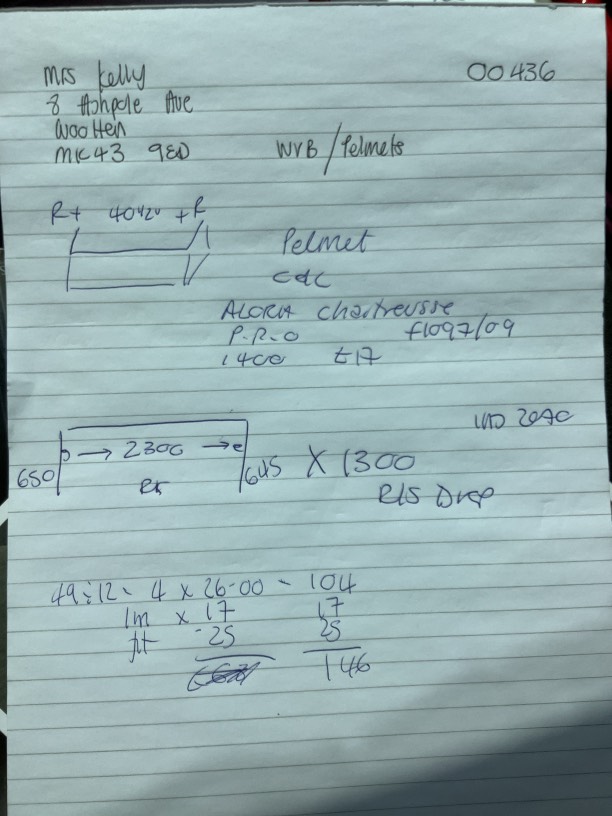 Mrs Kelly
00436
8 Ashpole Ave
Wootten
MK43 9ED
WVB/Pelmets
R+ 40420 +R
Pelmet
CdC
ALORIA Chartreusse
P.R.O f1097/09
1400 £17
650 → 2300 → 645 X 1300
R/S Drop
49÷12 - 4 x 26-00 - 104
1m x 17 17
fit -25 25
146